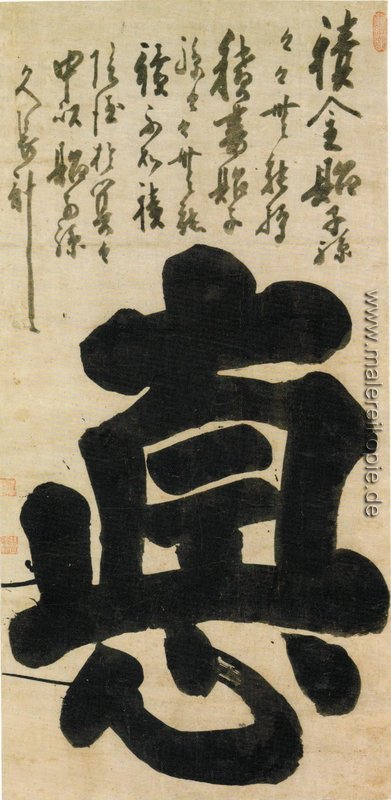 積金貽子孫
々々無能
積書貽子
孫々々無能
讀不如積
陰徳於冥々
中以貽子孫
久長計
悳
www.malereikopie.de